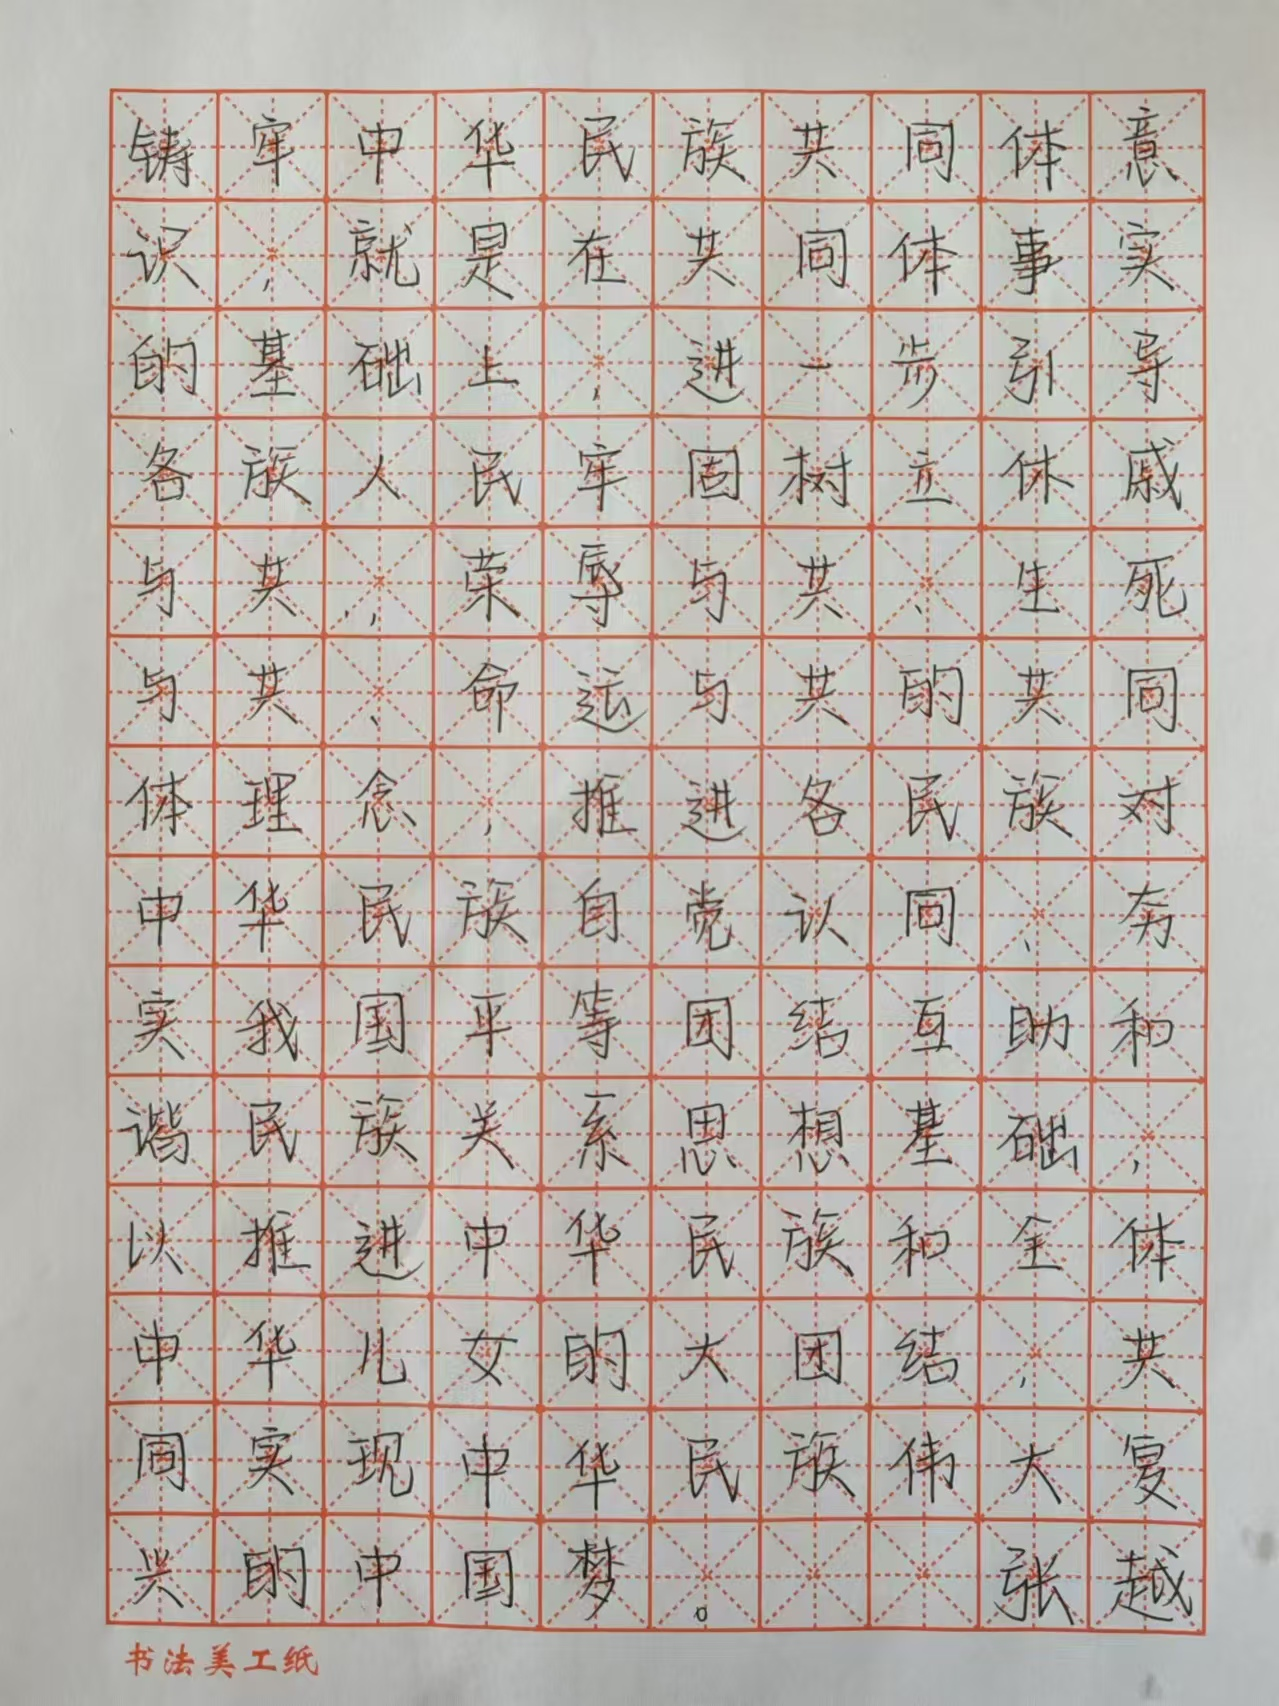 铸牢中华民族共同体意
识，就是在共同体事实
的基础上，进一步引导
各族人民牢固树立休戚
与共、，荣辱与共、生死
与共、命运与共的共同
体理念，推进各民族对
中华民族自觉认同、夯
实我国平等团结互助和
谐民族关系思想基础，
以推进中华民族和全体
中华儿女的大团结，共
同实现中华民族伟大复
兴的中国梦。 张越
书法美工纸